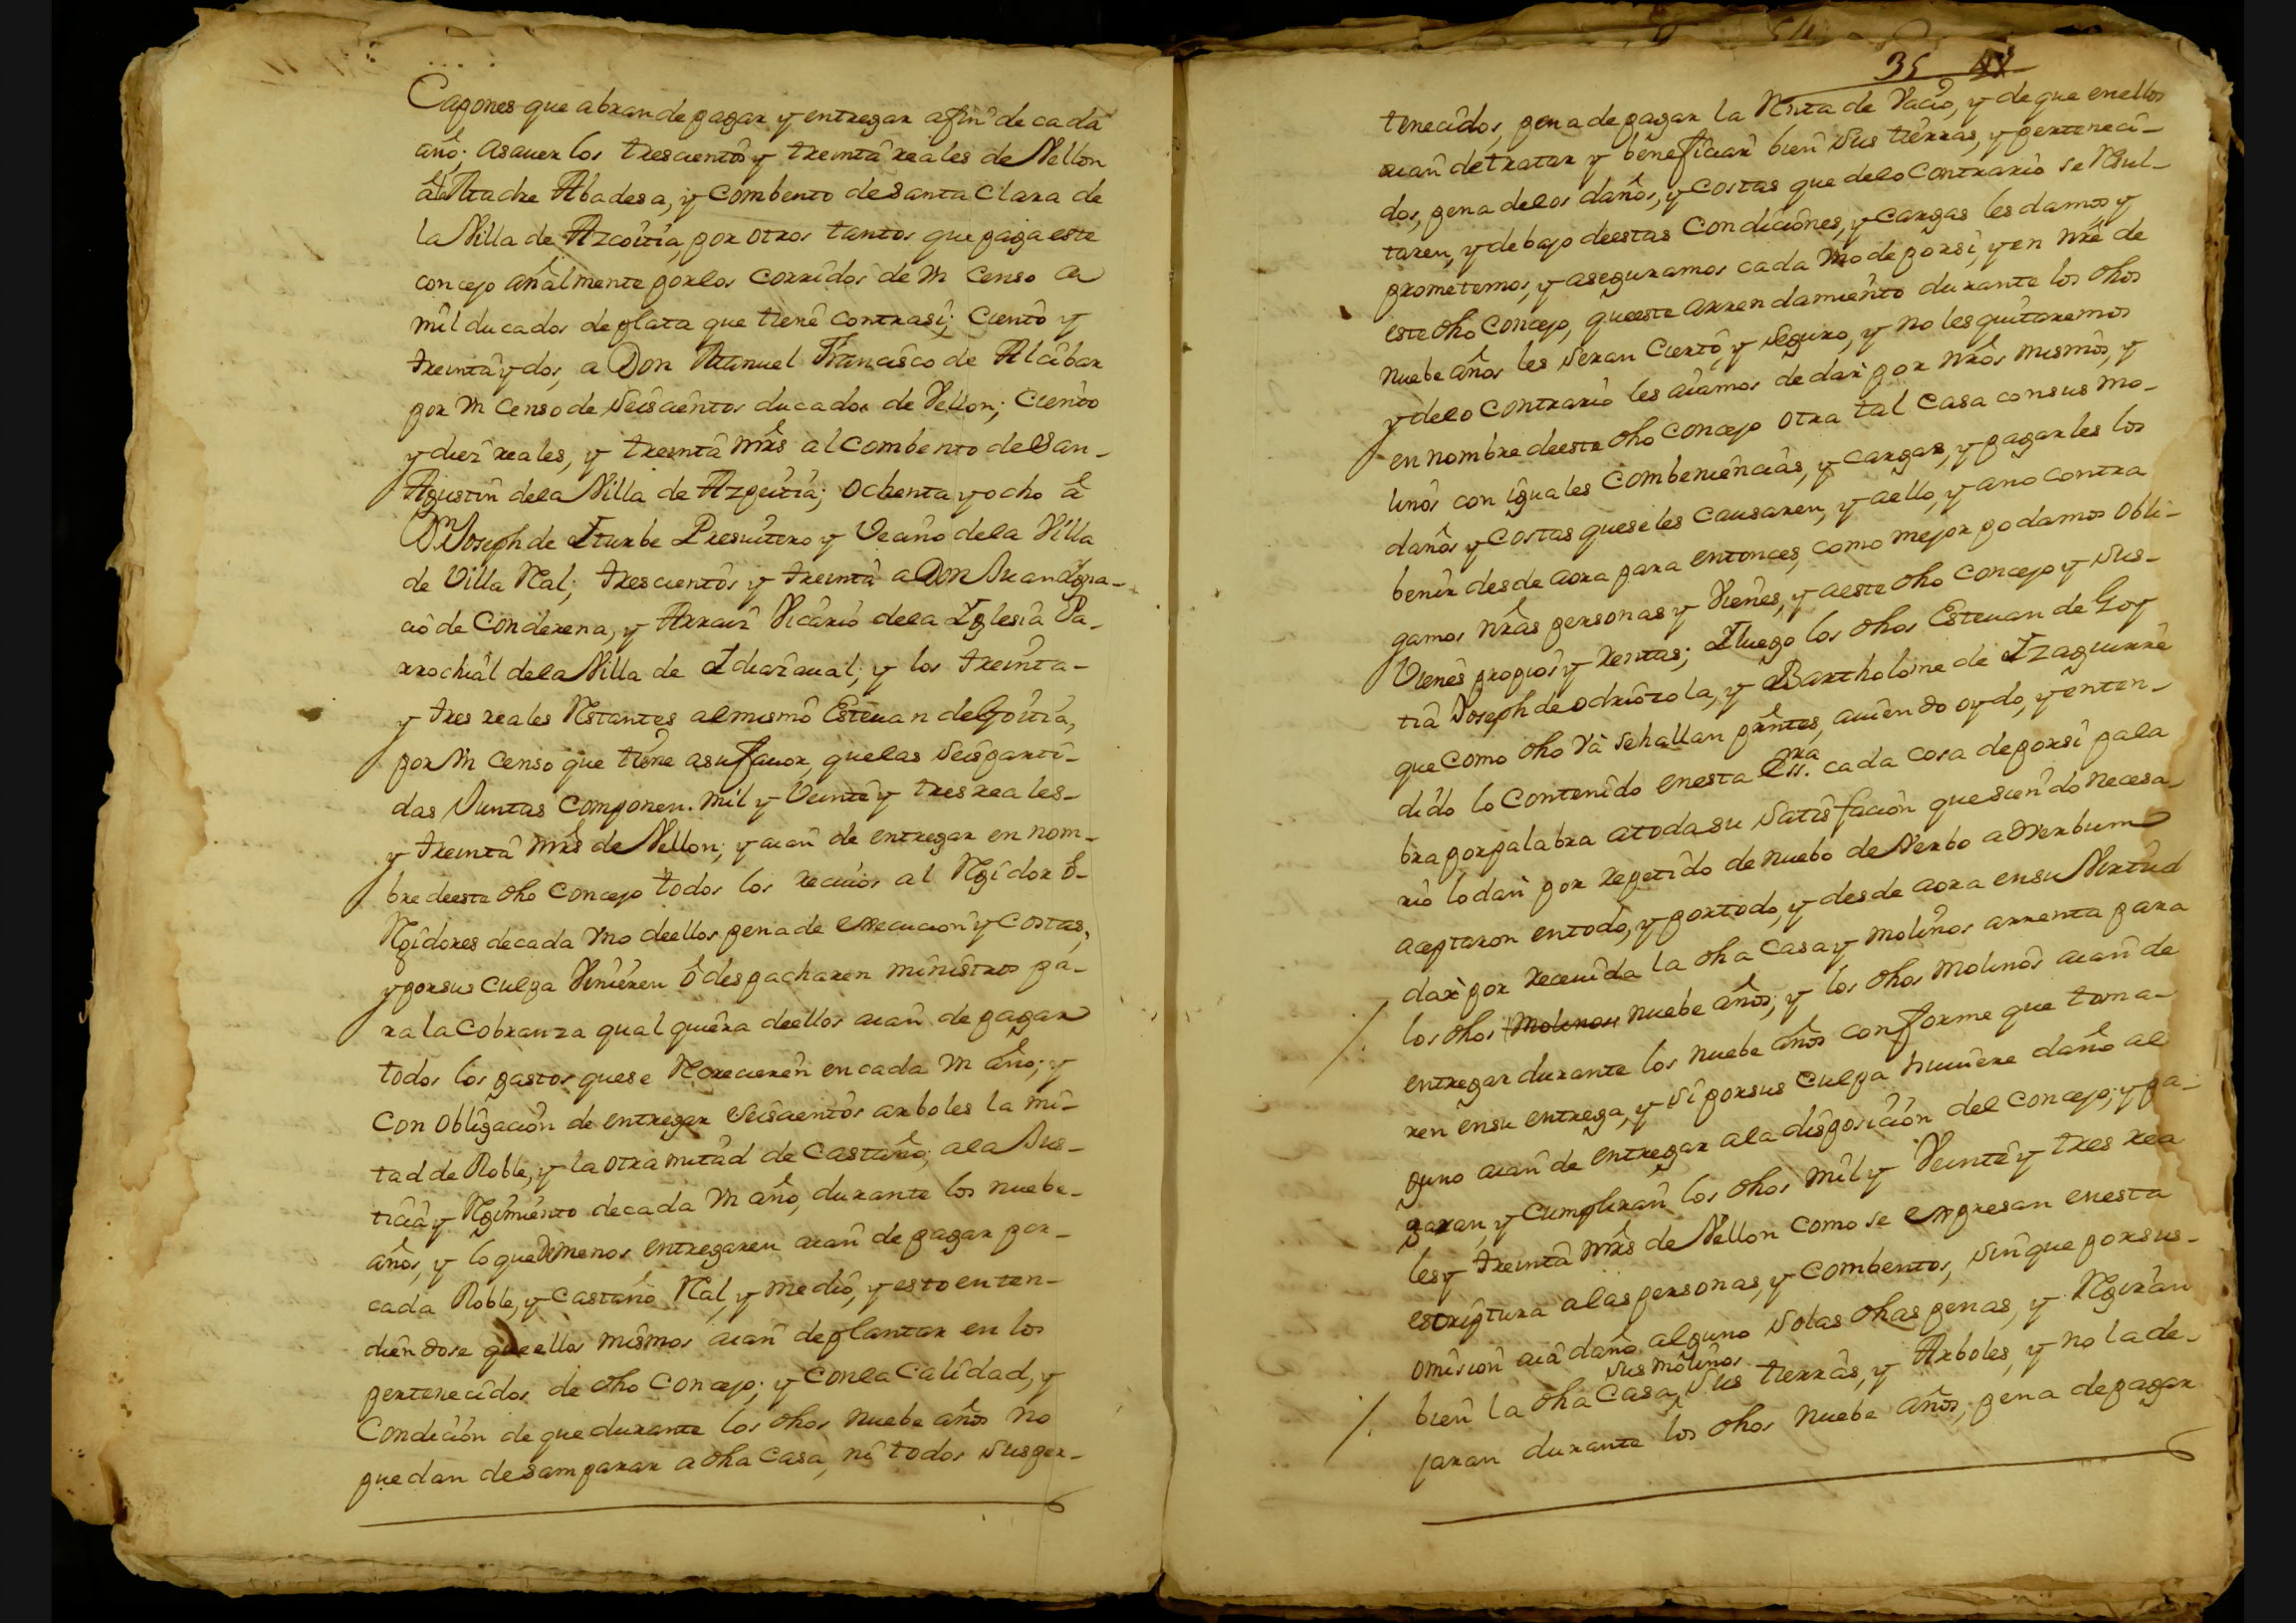 Capones que abran de pagar y entregar a fin de cada
año; asauer los trescientos y treinta reales de Vellon
a la Madre Abadesa, y Combento de Santa Clara de
la Villa de Azcoitia, por otros tantos que paga este
concejo añalmente por los corridos de Vn Censo de
mil ducados de plata que tiene contra si; Ciento y
treinta y dos, a Don Manuel Francisco de Alcibar
por Vn Censo de seiscientos ducados de Vellon; Ciento
y diez reales, y treinta mrs al Combento de San
Agustin de la Villa de Azpeitia; ochenta y ocho a
Dn Joseph de Iturbe Presuitero y Vecino de la Villa
de Villa Ral; trescientos y treinta a Don Juan Igna-
cio de Conderena, y Arraiz Vicario de la Iglesia Pa-
rrochial de la Villa de Idiazaual; y los treinta-
y tres reales Restantes al mismo Esteuan de Goitia,
por Vn Censo que tiene a su fauor, que las seis parti-
das Juntas componen. mil y Veinte y tres reales-
y treinta mrs de Vellon; y aian de entregar en nom-
bre de este dho Concejo todos los reciuos al Regidor o-
Regidores de cada Vno de ellos pena de execucion y Costas,
y por sus culpa Vinieren o despacharen ministros pa-
ra la Cobranza qual quiera de ellos aian de pagar
todos los gastos que se Recrecieren en cada Vn año; y
Con obligación de entregar seiscientos arboles la mi-
tad de Roble, y la otra mitad de Castaño; a la Jus-
ticia y Regimiento de cada Vn año, durante los nuebe-
años, y lo que de menos entregaren aian de pagar por-
cada Roble, y Castaño Ral, y medio, y esto enten-
diendose que ellos mismos aian de plantar en los
pertenecidos de dho Concejo; y con la Calidad, y
Condición de que durante los dhos nuebe años no
puedan desamparar a dha Casa, ni todos sus per-
35
tenecidos, pena de pagar la Renta de Vacio, y de que en ellos
aian de tratar y beneficiar bien sus tierras, y perteneci-
dos, pena de los daños, y Costas que de lo Contrario se Resul-
taren, y debajo de estas Condiciones, y Cargas les damos y
prometemos, y aseguramos cada Vno de por si, y en nre de
este dho Concejo, que este arrendamiento durante los dhos
nuebe años les seran Cierto, y seguro, y no les quitaremos
y de lo Contrario les aiamos de dar por nros mismos, y
en nombre de este dho Concejo otra tal Casa con sus mo-
linos con iguales Combeniencias, y Cargas, y pagarles los
daños y Costas que se les Causaren, y a ello, y a no contra
benir desde aora para entonces, como mejor podamos obli-
gamos nras personas y Vienes, y a este dho Concejo y sus-
Vienes propios y rentas; I luego los dhos Esteuan de Goy
tia Joseph de odriozola, y Bartholome de Izaguirre
que como dho Va se hallan pntes, auiendo oydo, y enten-
dido lo Contenido en esta Essra. cada cosa de por si pala
bra por palabra a toda su satisfacion que siendo necesa-
rio lo dan por repetido de nuebo de Verbo adverbum
aceptaron en todo, y por todo, y desde aora en su Virtud
dan por receuida la dha Casa y molinos a renta para
los dhos Molinos nuebe años; y los dhos Molinos aian de
entregar durante los nuebe años conforme que toma-
ren en su entrega, y si por sus Culpa huuiere daño al
guno aian de entregar a la disposición del Concejo; y pa-
garan, y Cumpliran los dhos mil y Veinte y tres rea
les y treinta mrs de Vellon como se expresan en esta
escriptura a las personas, y combentos, sin que por sus-
omision aia daño alguno so las dhas penas, y Regiran
sus molinos
bien la dha Casa, sus tierras, y Arboles, y no la de-
jaran durante los dhos nuebe años, pena de pagar